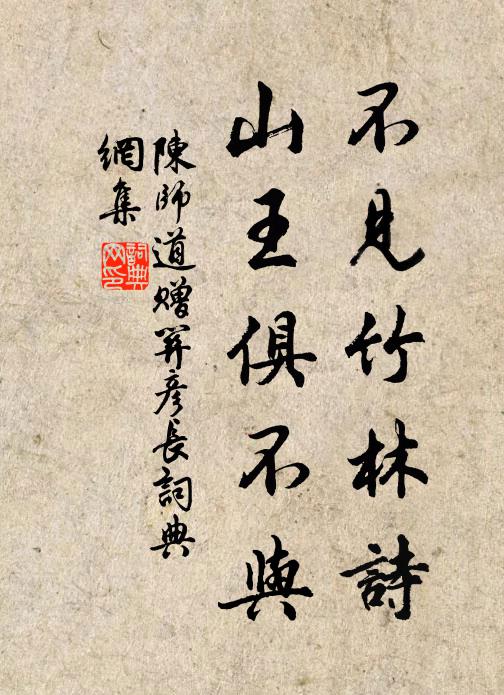 不見竹林詩
山王俱不與
陳師道贈筭彥長詞典
網集
詞典
网印